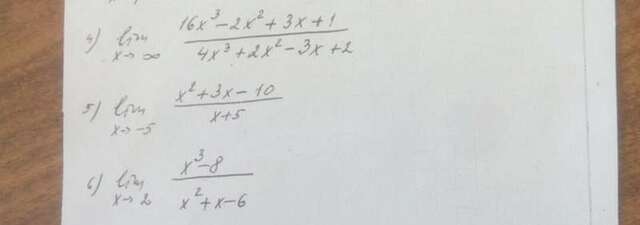 4) lim x→∞ (16x³ - 2x² + 3x + 1) / (4x³ + 2x² - 3x + 2)
5) lim x→-5 (x² + 3x - 10) / (x+5)
6) lim x→2 (x³ - 8) / (x² + x - 6)